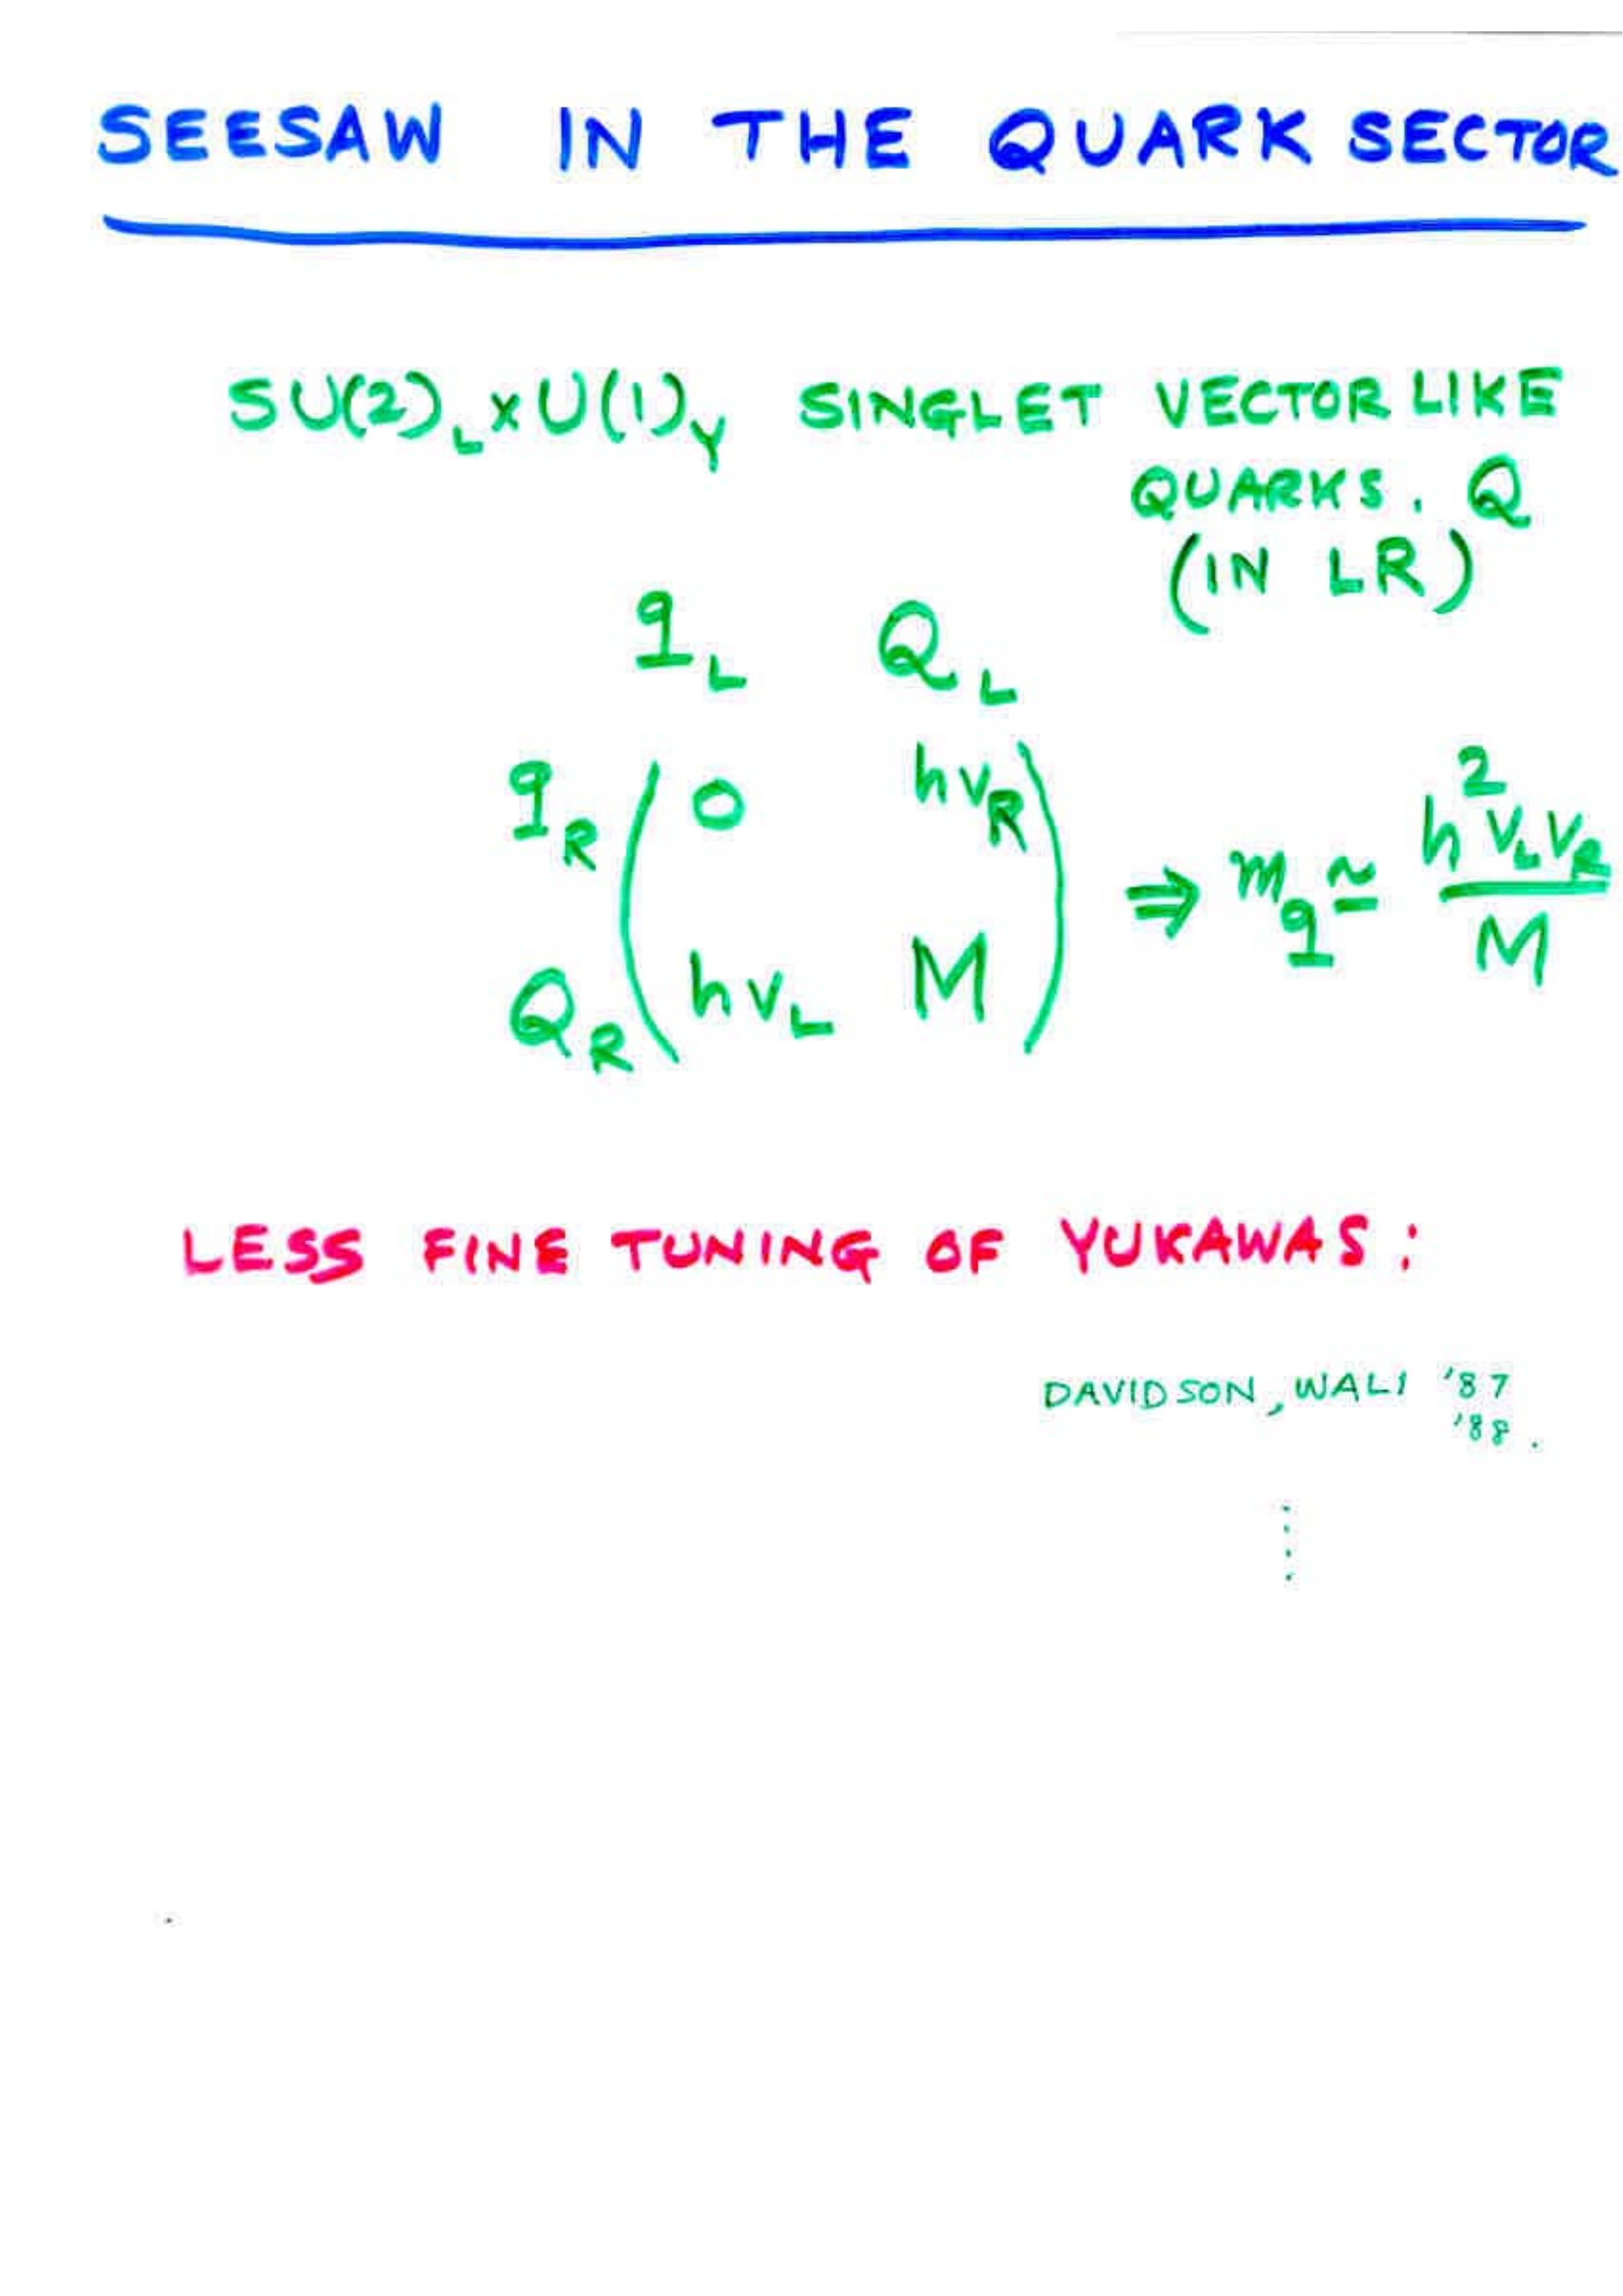 SEESAW IN THE QUARK SECTOR
SU(2)_L × U(1)_Y SINGLET VECTOR LIKE
QUARKS. Q
(IN LR)
q_L Q_L
q_R ( 0 hv_R )
⇒ m_q ≃ h² v_L v_R / M
Q_R ( hv_L M )
LESS FINE TUNING OF YUKAWAS :
DAVIDSON, WALI '87
'88 .